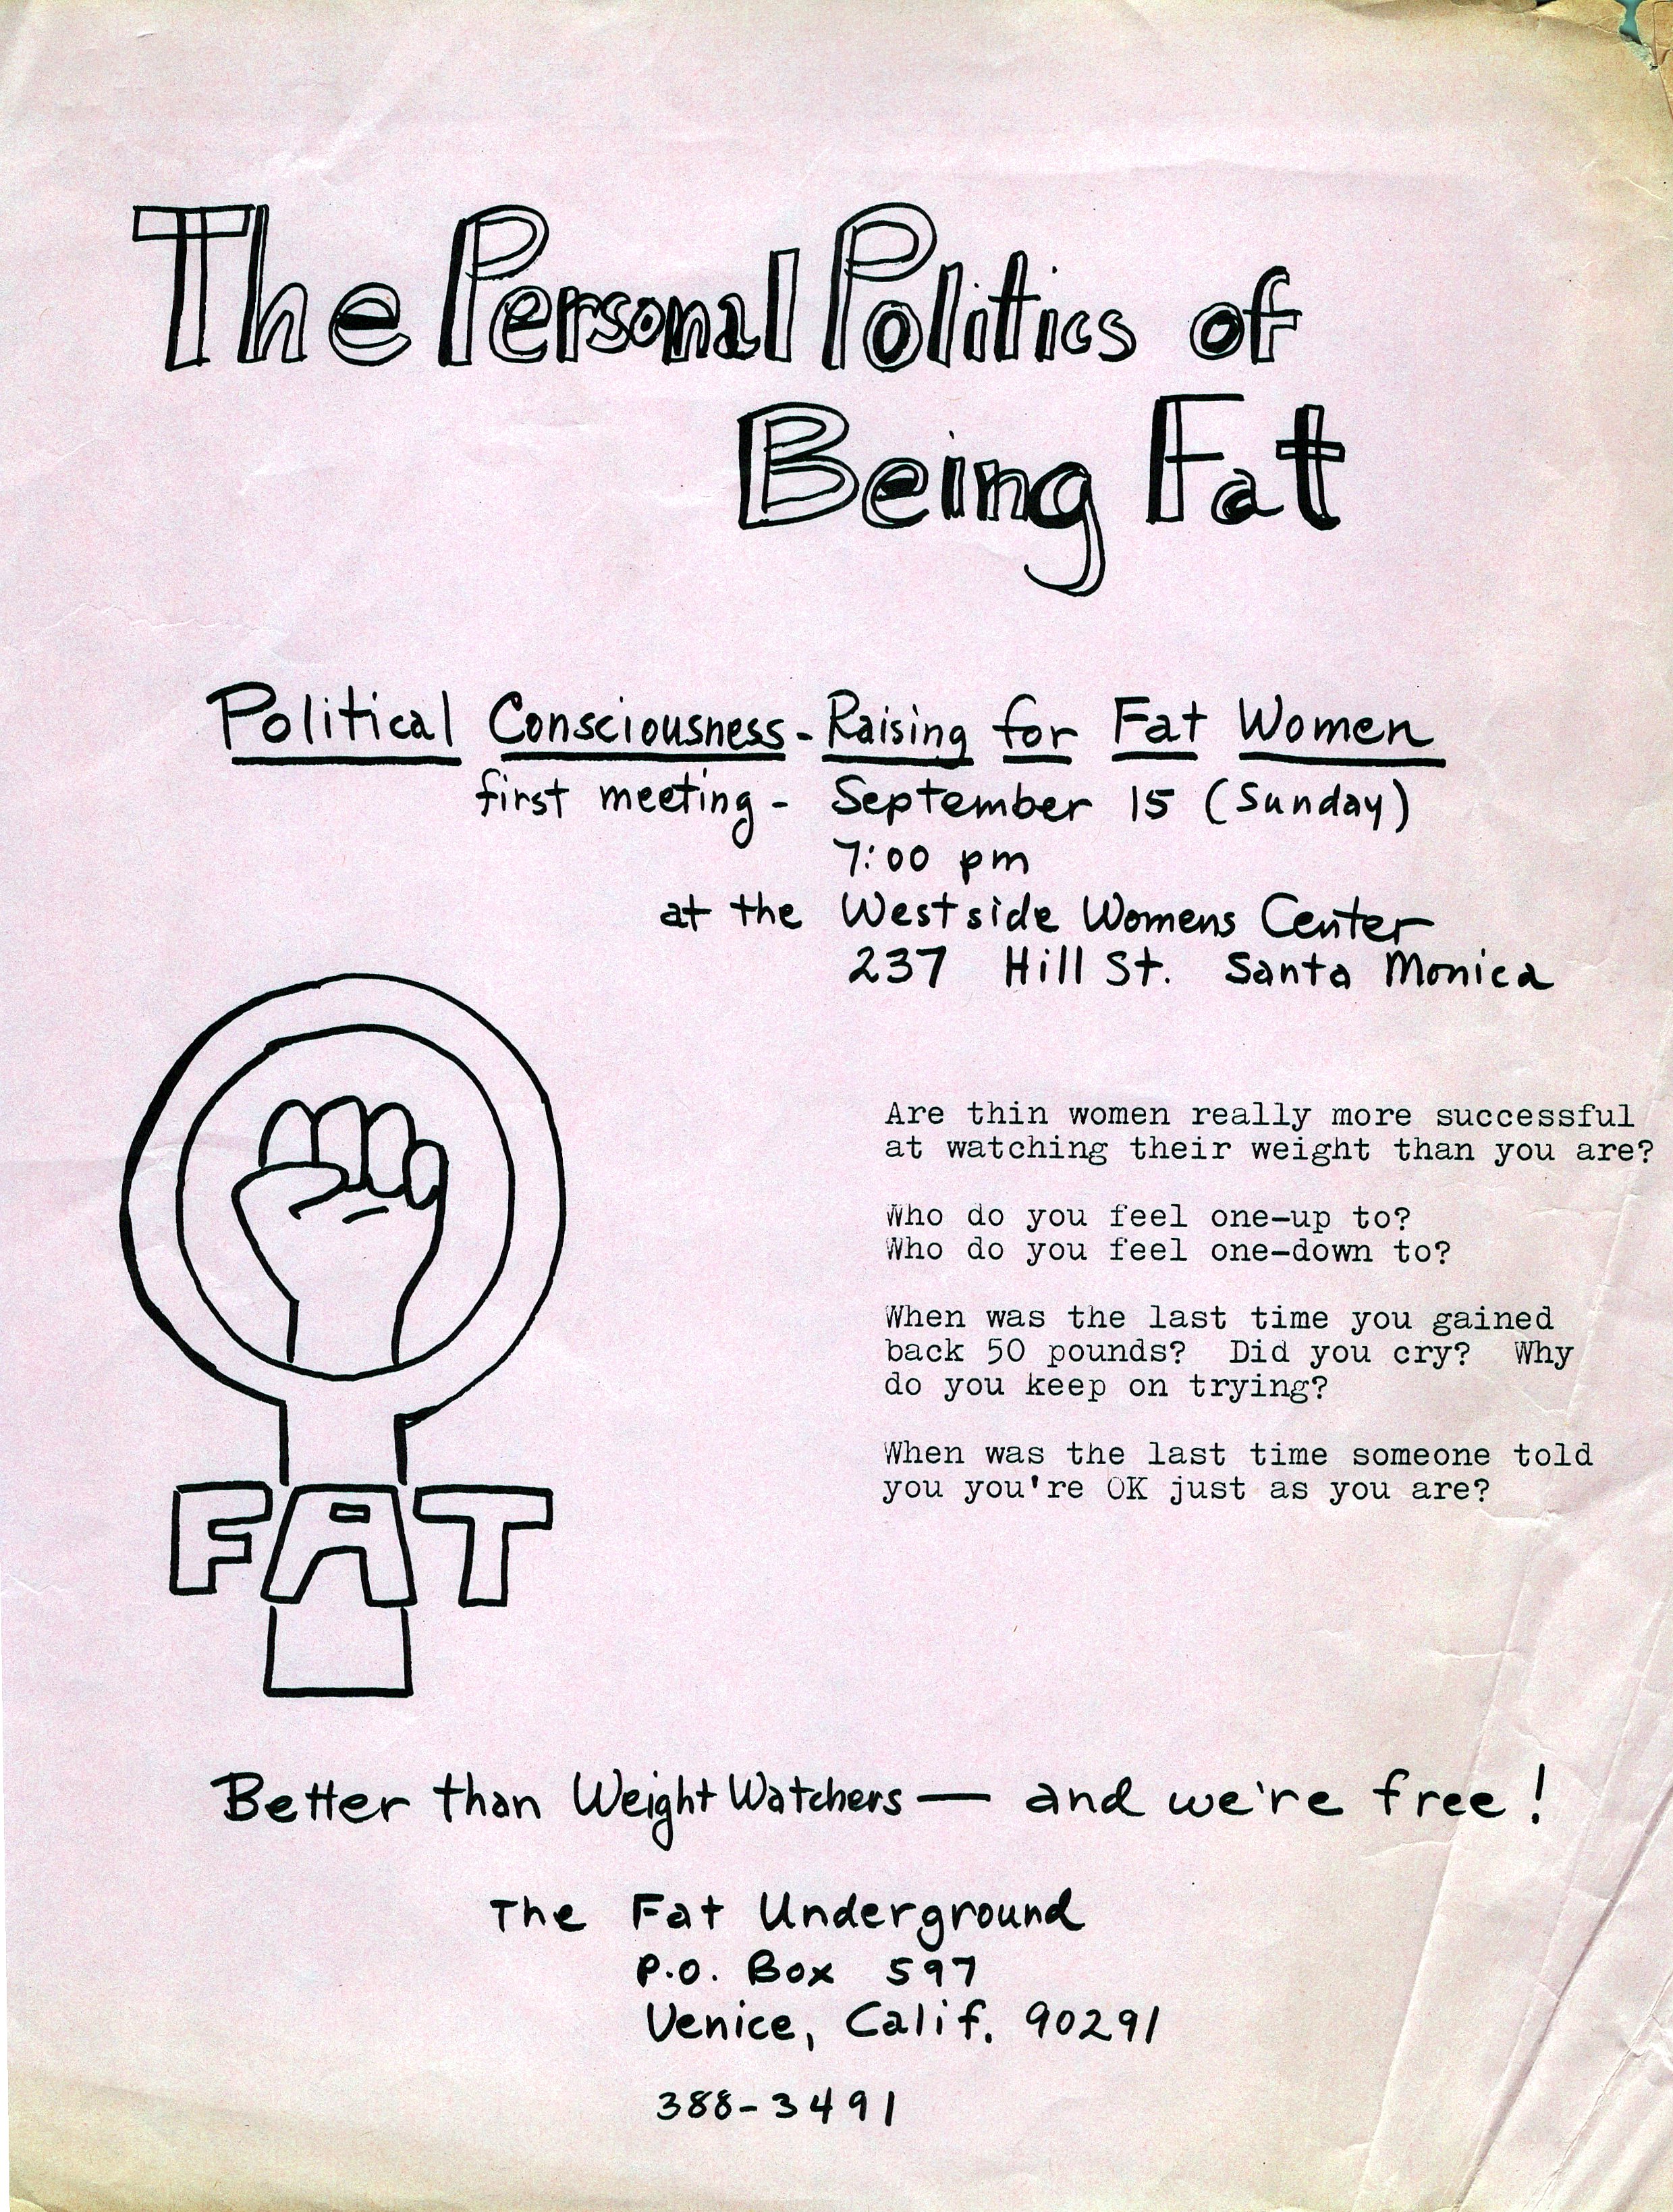 The Personal Politics of
Being Fat
Political Consciousness-Raising for Fat Women
first meeting - September 15 (Sunday)
7:00 pm
at the Westside Womens Center
237 Hill St. Santa Monica
Are thin women really more successful
at watching their weight than you are?
Who do you feel one-up to?
Who do you feel one-down to?
When was the last time you gained
back 50 pounds? Did you cry? Why
do you keep on trying?
When was the last time someone told
you you're OK just as you are?
FAT
Better than Weight Watchers — and we're free!
The Fat Underground
P.O. Box 597
Venice, Calif. 90291
388-3491